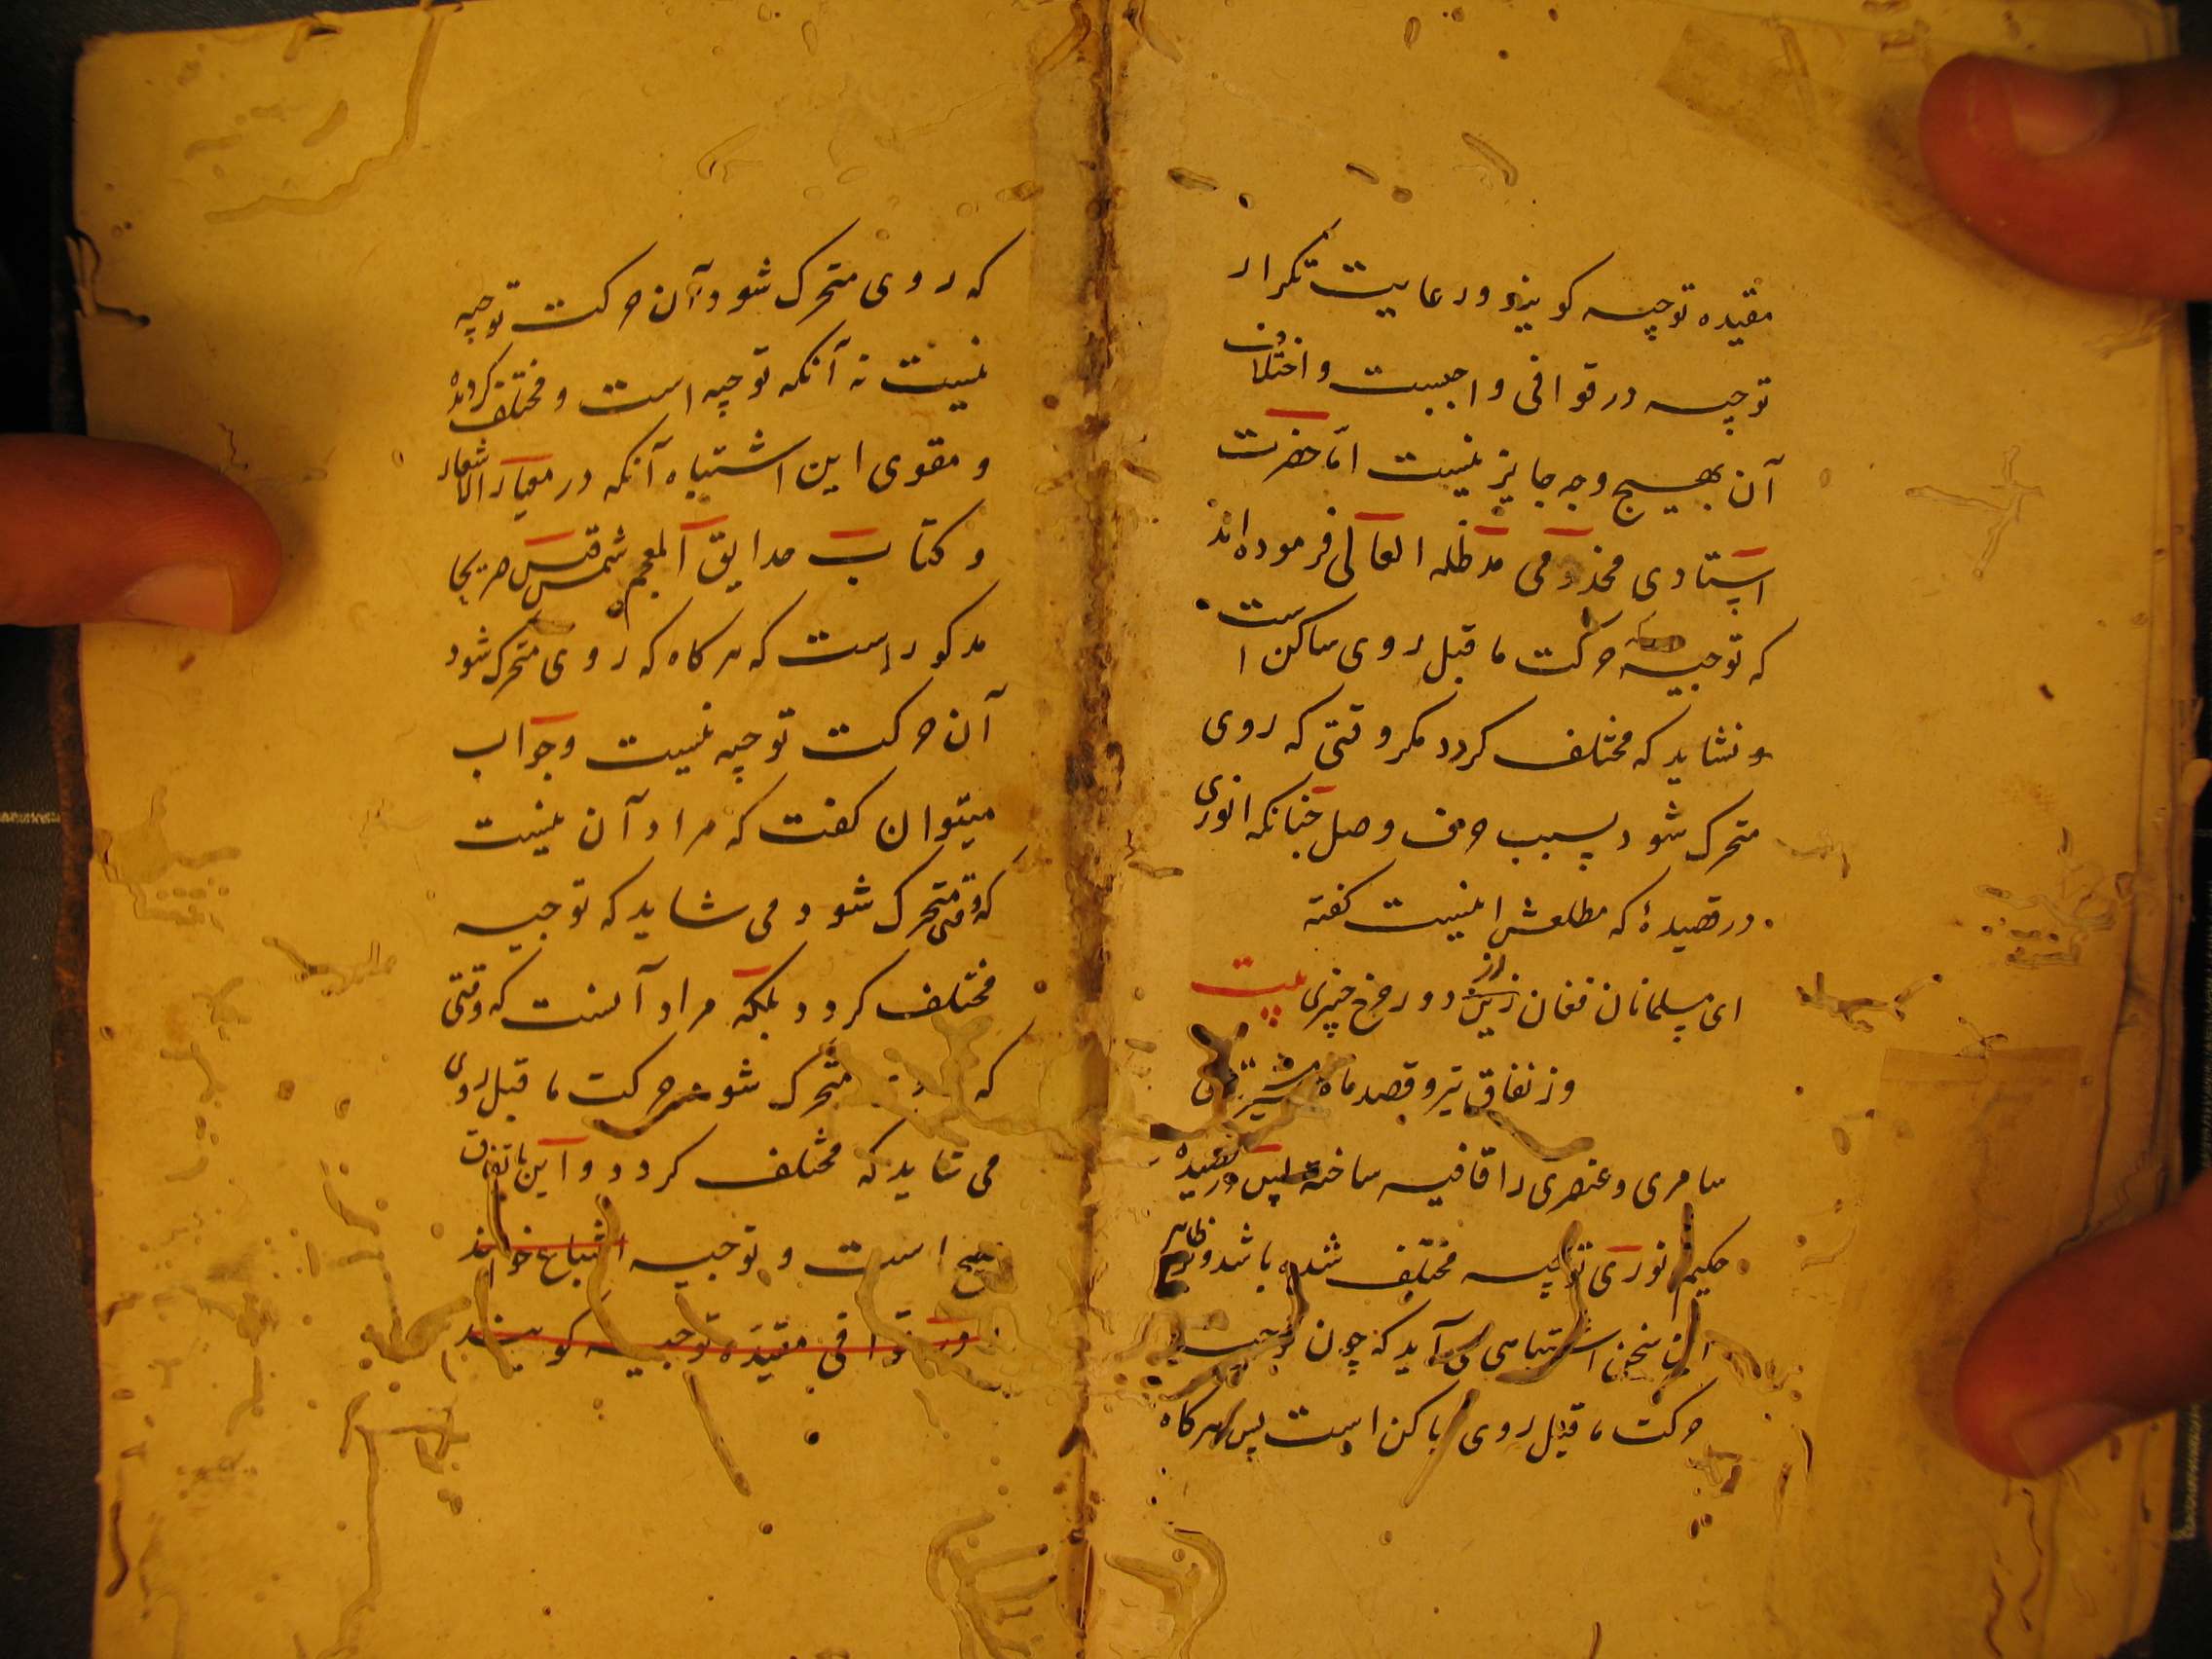 مقیده توجیه کویند ورعایت تکرار
توجیه در قوافی واجبست و اختلاف
آن بهیچ وجه جایز نیست امّا حضرت
استادی مخدومی مدظله العالی فرموده اند
که توجیه حرکت ماقبل روی ساکن است
و نشاید که مختلف کردد مکر وقتی که روی
متحرک شود بسبب حرف وصل چنانکه انوری
در قصیدهٔ که مطلعش اینست کفته
بیت
ای مسلمانان فغان از دور چرخ چنبری
وز نفاق تیر و قصد ماه
سامری و عنصری را قافیه ساخته پس در قصیده
حکیم انوری توجیه مختلف شده باشد و ظاهر
این سخن اشتباهی می آید که چون توجیه
حرکت ماقبل روی ساکن است پس هرکاه
که روی متحرک شود آن حرکت توجیه
نیست نه آنکه توجیه است و مختلف کردیده
و مقوی این اشتباه آنکه در معیار الاشعار
و کتاب حدایق المعجم شمس قیس صریحا
مذکور است که هرکاه که روی متحرک شود
آن حرکت توجیه نیست وجواب
میتوان کفت که مراد آن نیست
که وقتی متحرک شود می شاید که توجیه
مختلف کردد بلکه مراد آنست که وقتی
که متحرک شود حرکت ماقبل روی
می شاید که مختلف کردد و این باتفاق
است و توجیه اشباع خوانند
در قوافی مقیده توجیه کویند